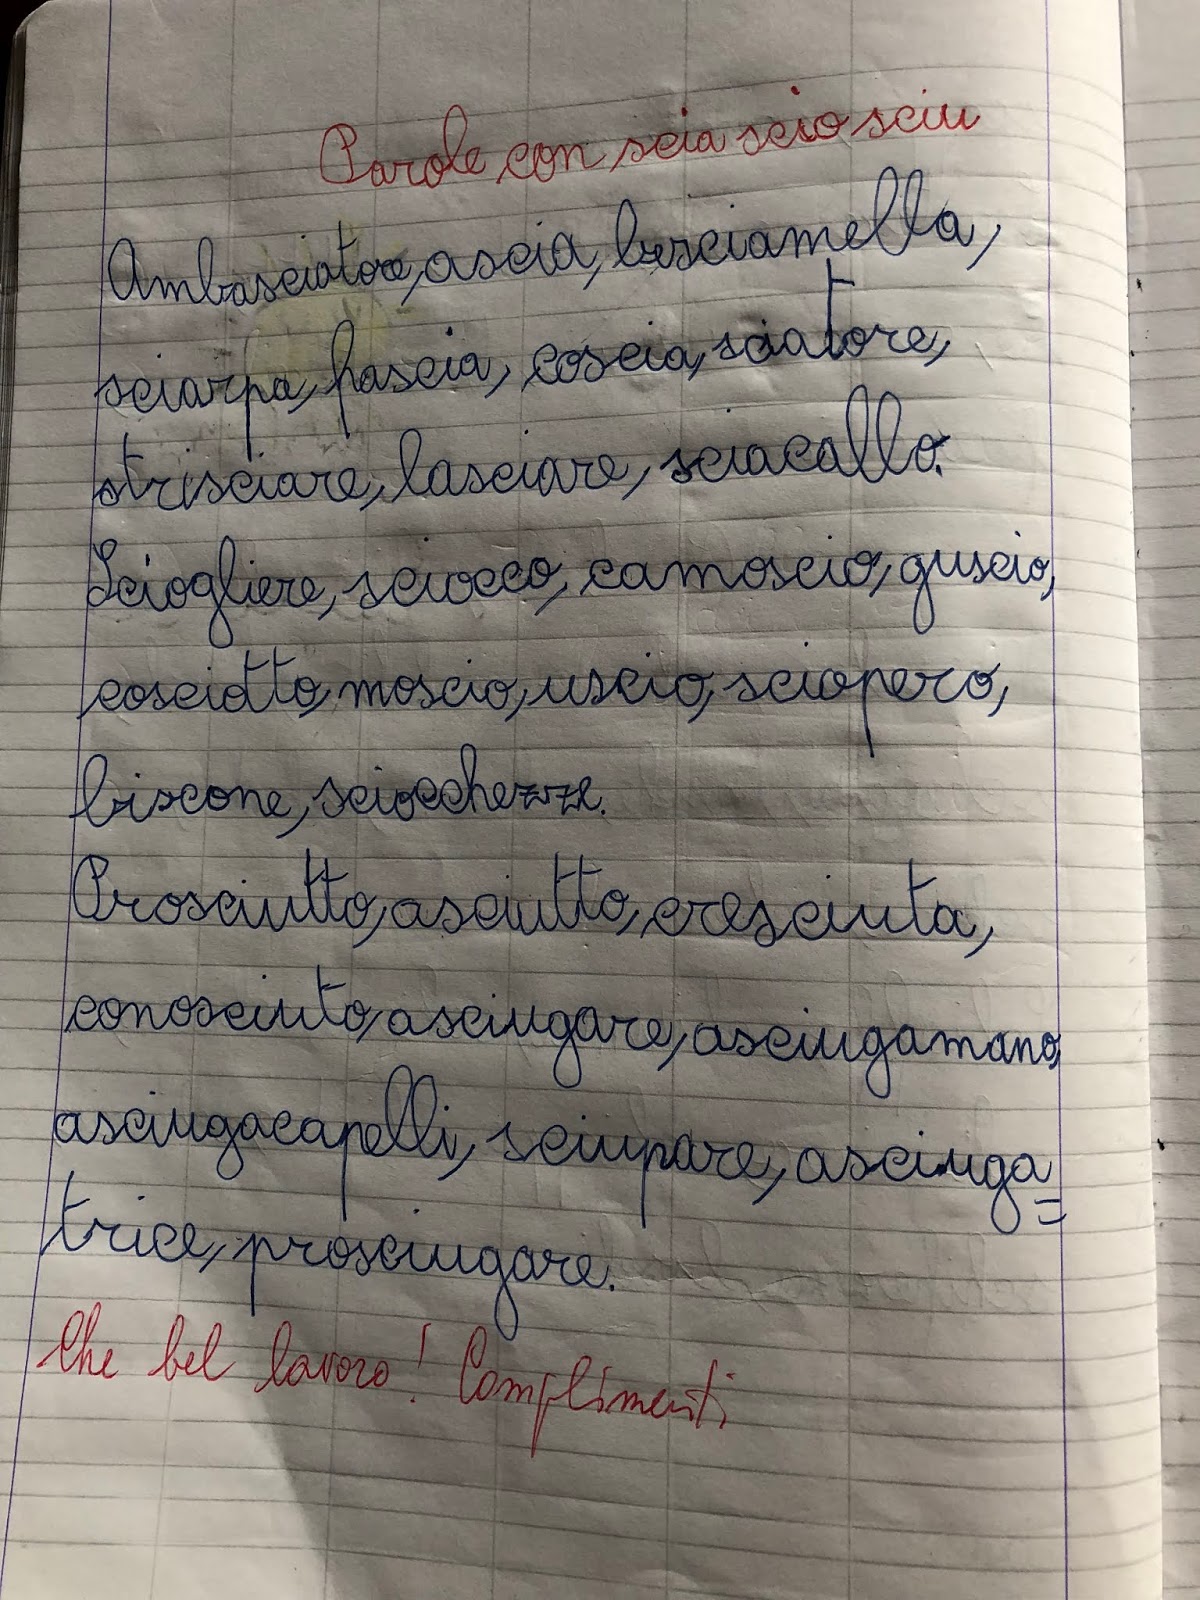 Parole con scia scio sciu
Ambasciatore, ascia, besciamella,
sciarpa, fascia, coscia, sciatore,
strisciare, lasciare, sciacallo.
Sciogliere, sciocco, camoscio, guscio,
cosciotto, moscio, uscio, sciopero,
biscone, sciocchezze.
Prosciutto, asciutto, cresciuta,
conosciuto, asciugare, asciugamano,
asciugacapelli, sciupare, asciuga=
trice, prosciugare.
Che bel lavoro! Complimenti